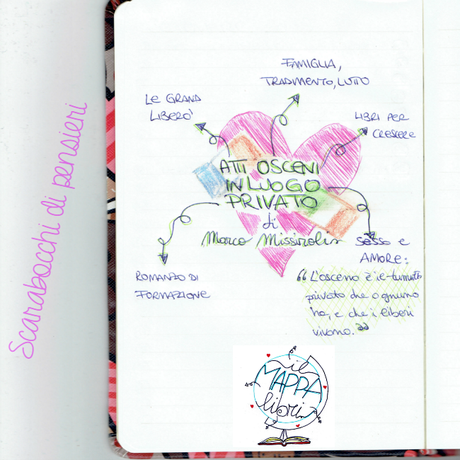 Scarabocchi di pensieri
FAMIGLIA,
TRADIMENTO, LUTTO
LE GRAND
LIBERO'
LIBRI PER
CRESCERE
ATTI OSCENI
IN LUOGO
PRIVATO
di
Marco Missiroli
ROMANZO DI
FORMAZIONE
SESSO E
AMORE:
"L'osceno è il tumulto
privato che ognuno
ha, e che i liberi
vivono."
il
MAPPA
libri